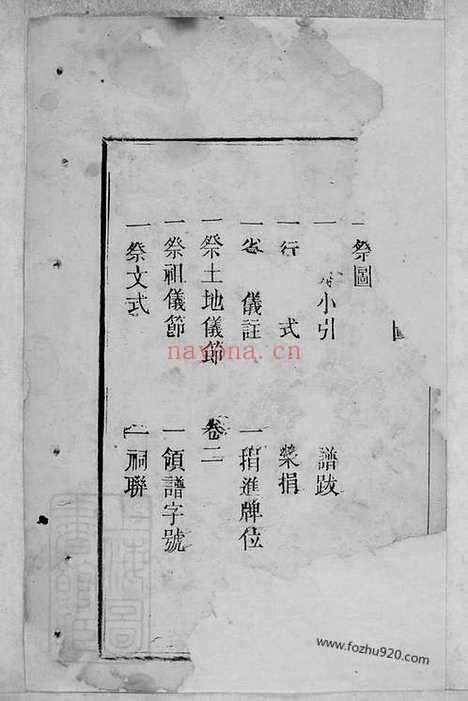 一祭圖
一 小引 譜跋
一行 式 榮捐
一省 儀註 一捐進牌位
一祭土地儀節 卷二
一祭祖儀節 一領譜字號
一祭文式 一祠聯
nayona.cn
www.fozhu920.com